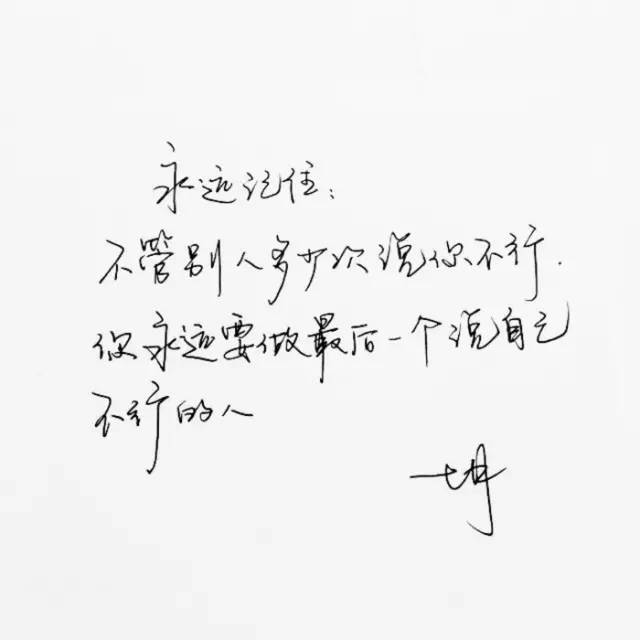 永远记住：
不管别人多少次说你不行.
你永远要做最后一个说自己
不行的人